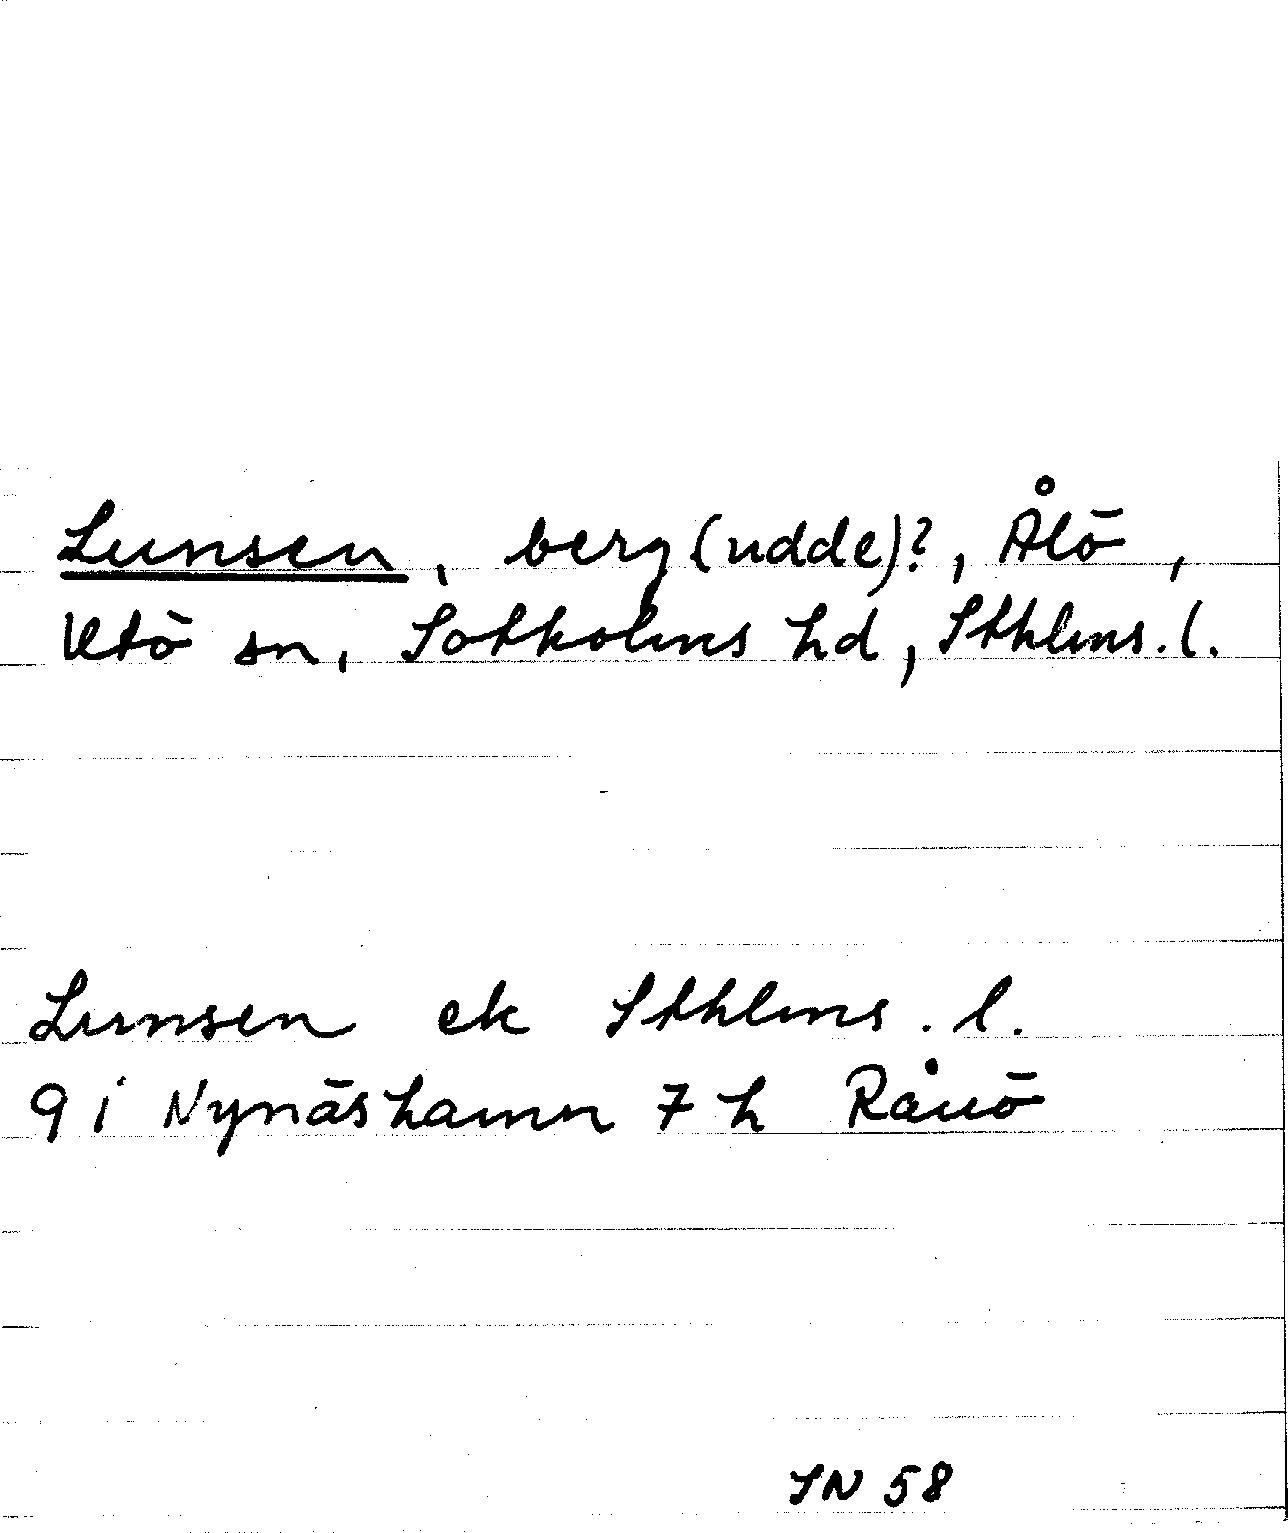 Lunsen, berg (udde)?, Ålö,
Utö sn, Sotholms hd, Sthlms. l.
Lunsen ek Sthlms. l.
9 i Nynäshamn 7 h Rånö
SN 58